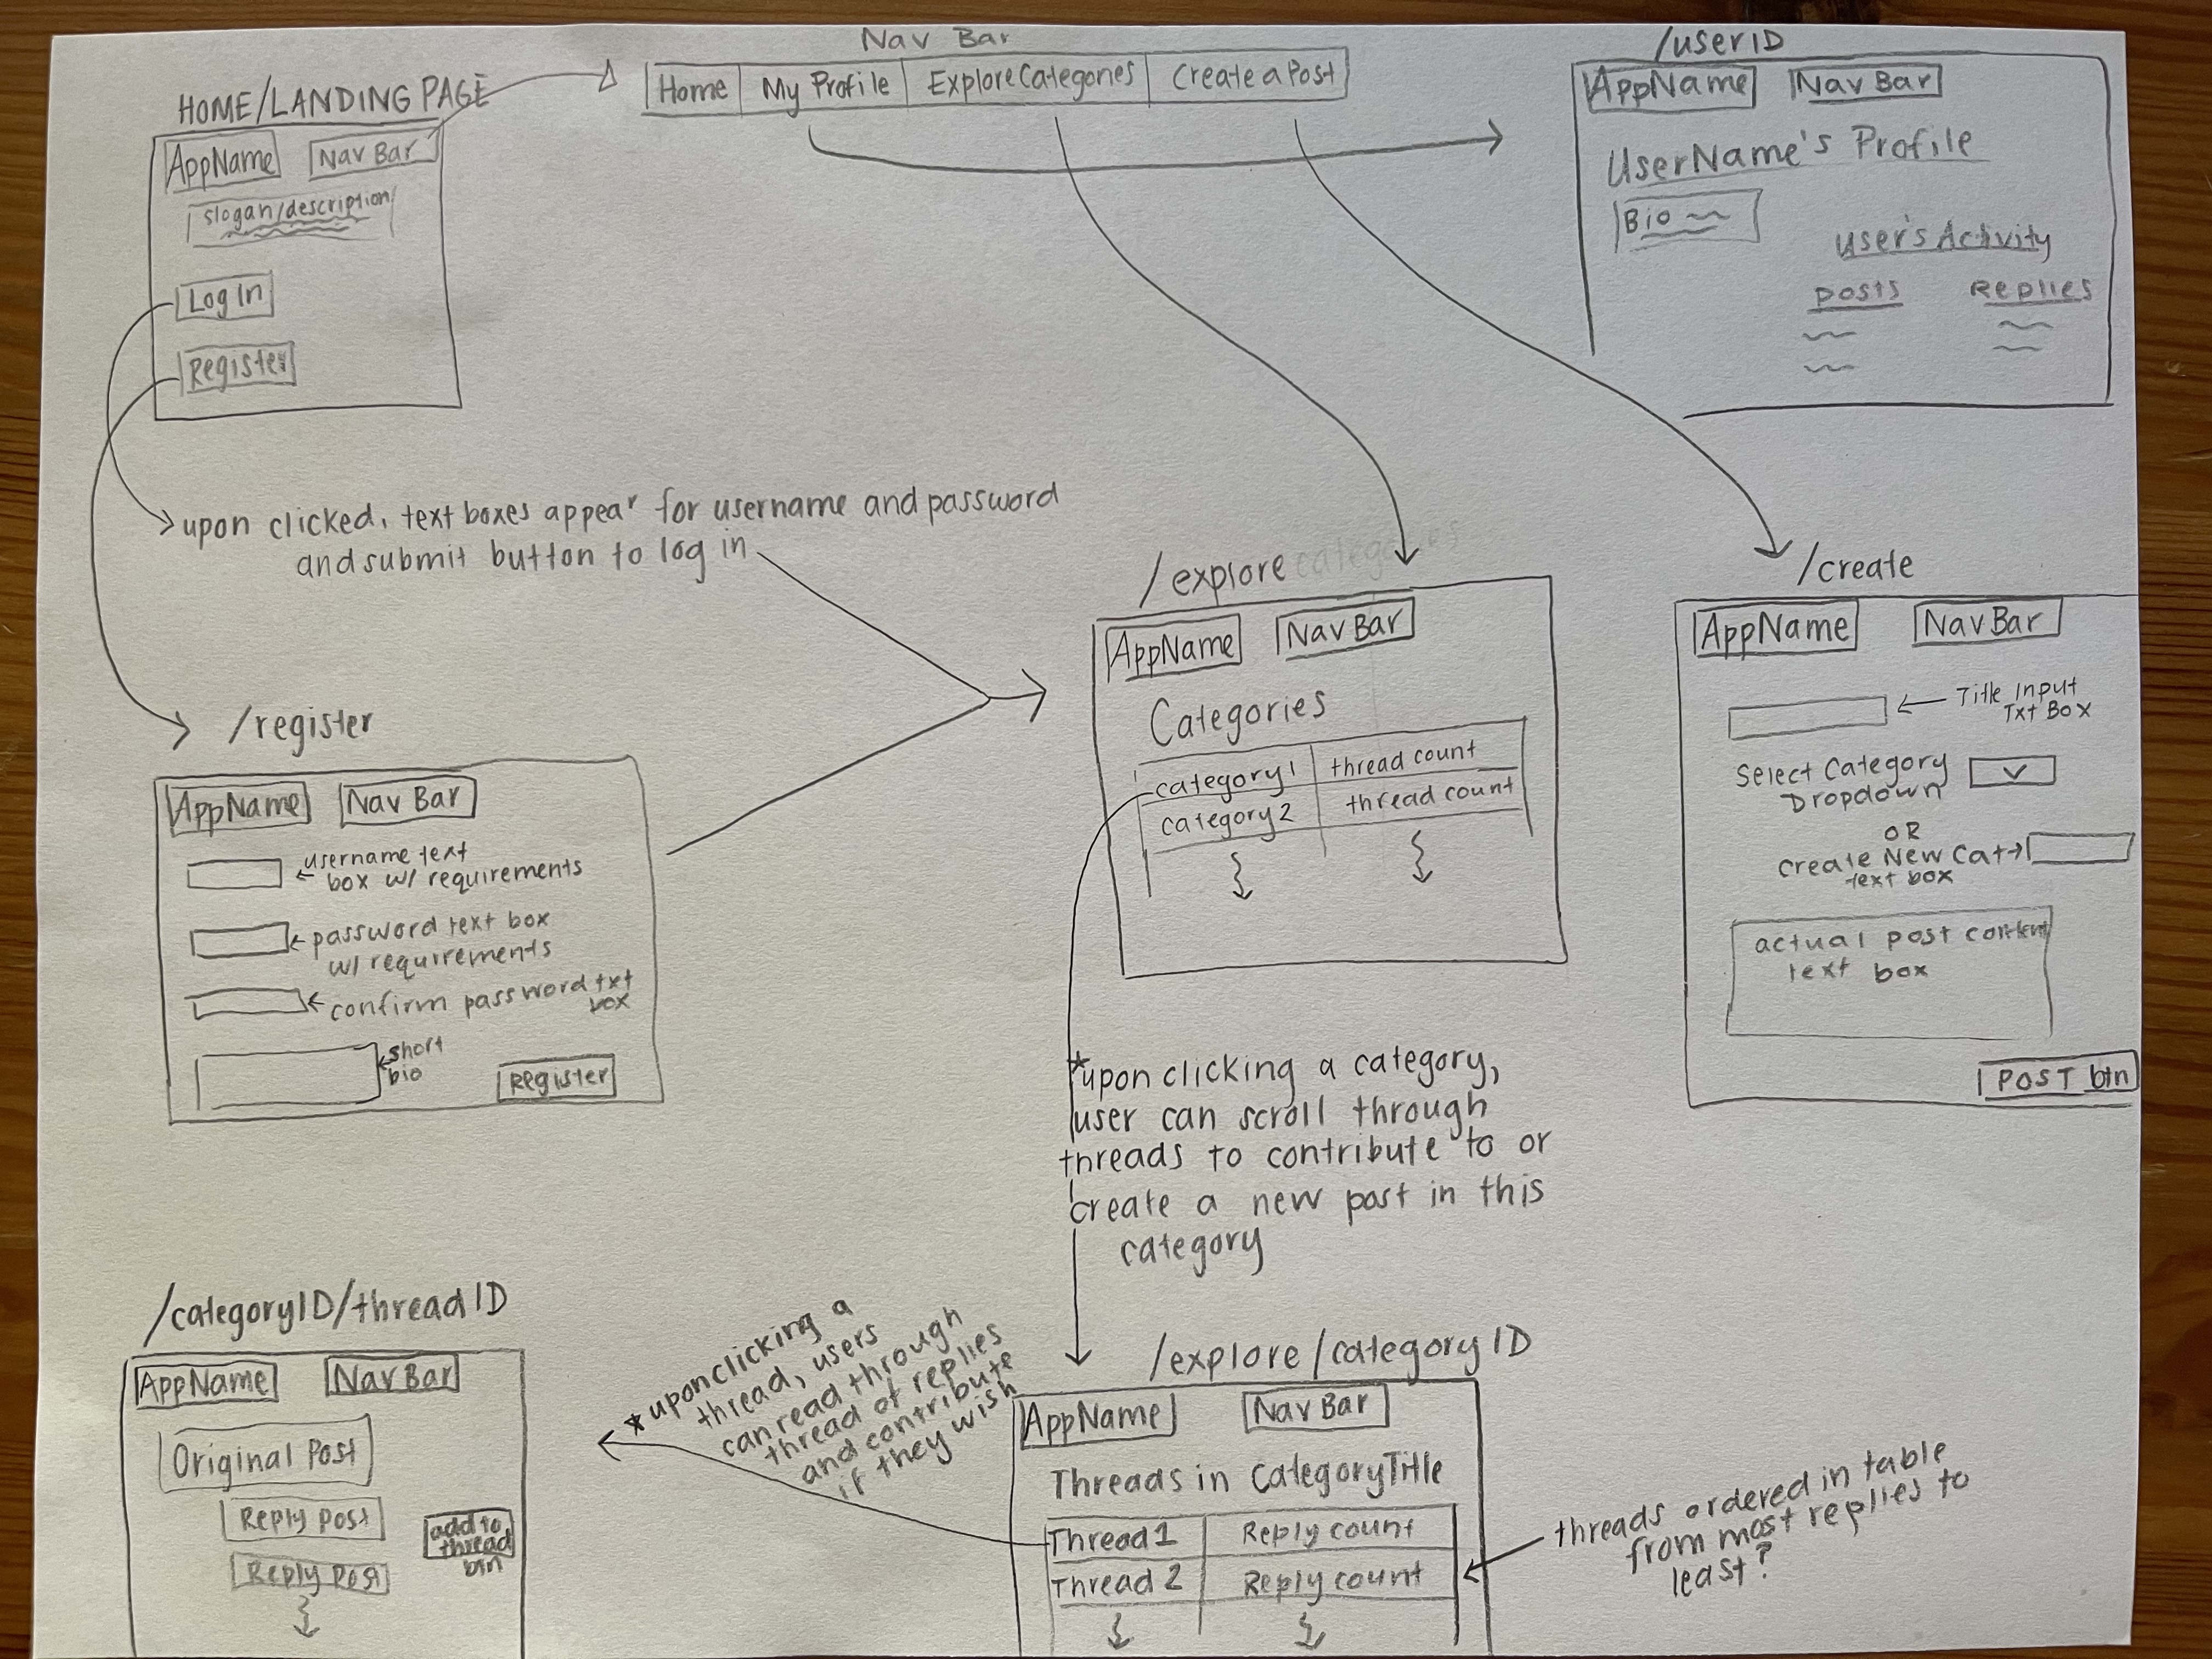 Nav Bar
Home My Profile Explore Categories Create a Post
HOME/LANDING PAGE
AppName Nav Bar
slogan/description
Log In
Register
/userID
AppName Nav Bar
UserName's Profile
Bio
User's Activity
Posts Replies
upon clicked, text boxes appear for username and password
and submit button to log in
/register
AppName Nav Bar
username text
box w/ requirements
password text box
w/ requirements
confirm password txt
box
short
bio
Register
/explore categories
AppName Nav Bar
Categories
category1 thread count
category2 thread count
/create
AppName Nav Bar
Title Input
Txt Box
Select Category
Dropdown
OR
Create New Cat
text box
actual post content
text box
POST btn
*upon clicking a category,
user can scroll through
threads to contribute to or
create a new post in this
category
/categoryID/threadID
AppName Nav Bar
Original Post
Reply post
add to
thread
btn
Reply Post
*upon clicking a
thread, users
can read through
thread of replies
and contribute
if they wish
/explore/categoryID
AppName Nav Bar
Threads in CategoryTitle
Thread1 Reply count
Thread 2 Reply count
threads ordered in table
from most replies to
least?